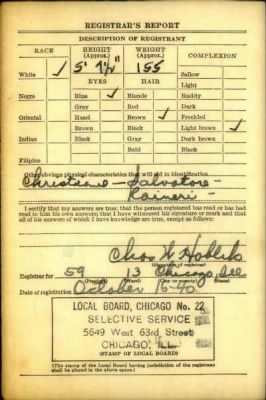 REGISTRAR'S REPORT
DESCRIPTION OF REGISTRANT
RACE HEIGHT (Approx.) WEIGHT (Approx.) COMPLEXION
White ✓ 5' 7½" 155 Sallow
Light
EYES HAIR
Negro Blue ✓ Blonde Ruddy
Gray Red Dark
Oriental Hazel Brown ✓ Freckled
Brown Black Light brown ✓
Indian Black Gray Dark brown
Bald Black
Filipino
Other obvious physical characteristics that will aid in identification
Salvatore
Raineri
I certify that my answers are true; that the person registered has read or has had
read to him his own answers; that I have witnessed his signature or mark and that
all of his answers of which I have knowledge are true, except as follows:
Chas W
(Signature of registrar)
Registrar for 59 13 Chicago, Ill
(Precinct) (Ward) (City or county) (State)
Date of registration October 16-40
LOCAL BOARD, CHICAGO No. 22
SELECTIVE SERVICE
5649 West 63rd Street
CHICAGO, ILL.
(STAMP OF LOCAL BOARD)
(The stamp of the Local Board having jurisdiction of the registrant
shall be placed in the above space.)